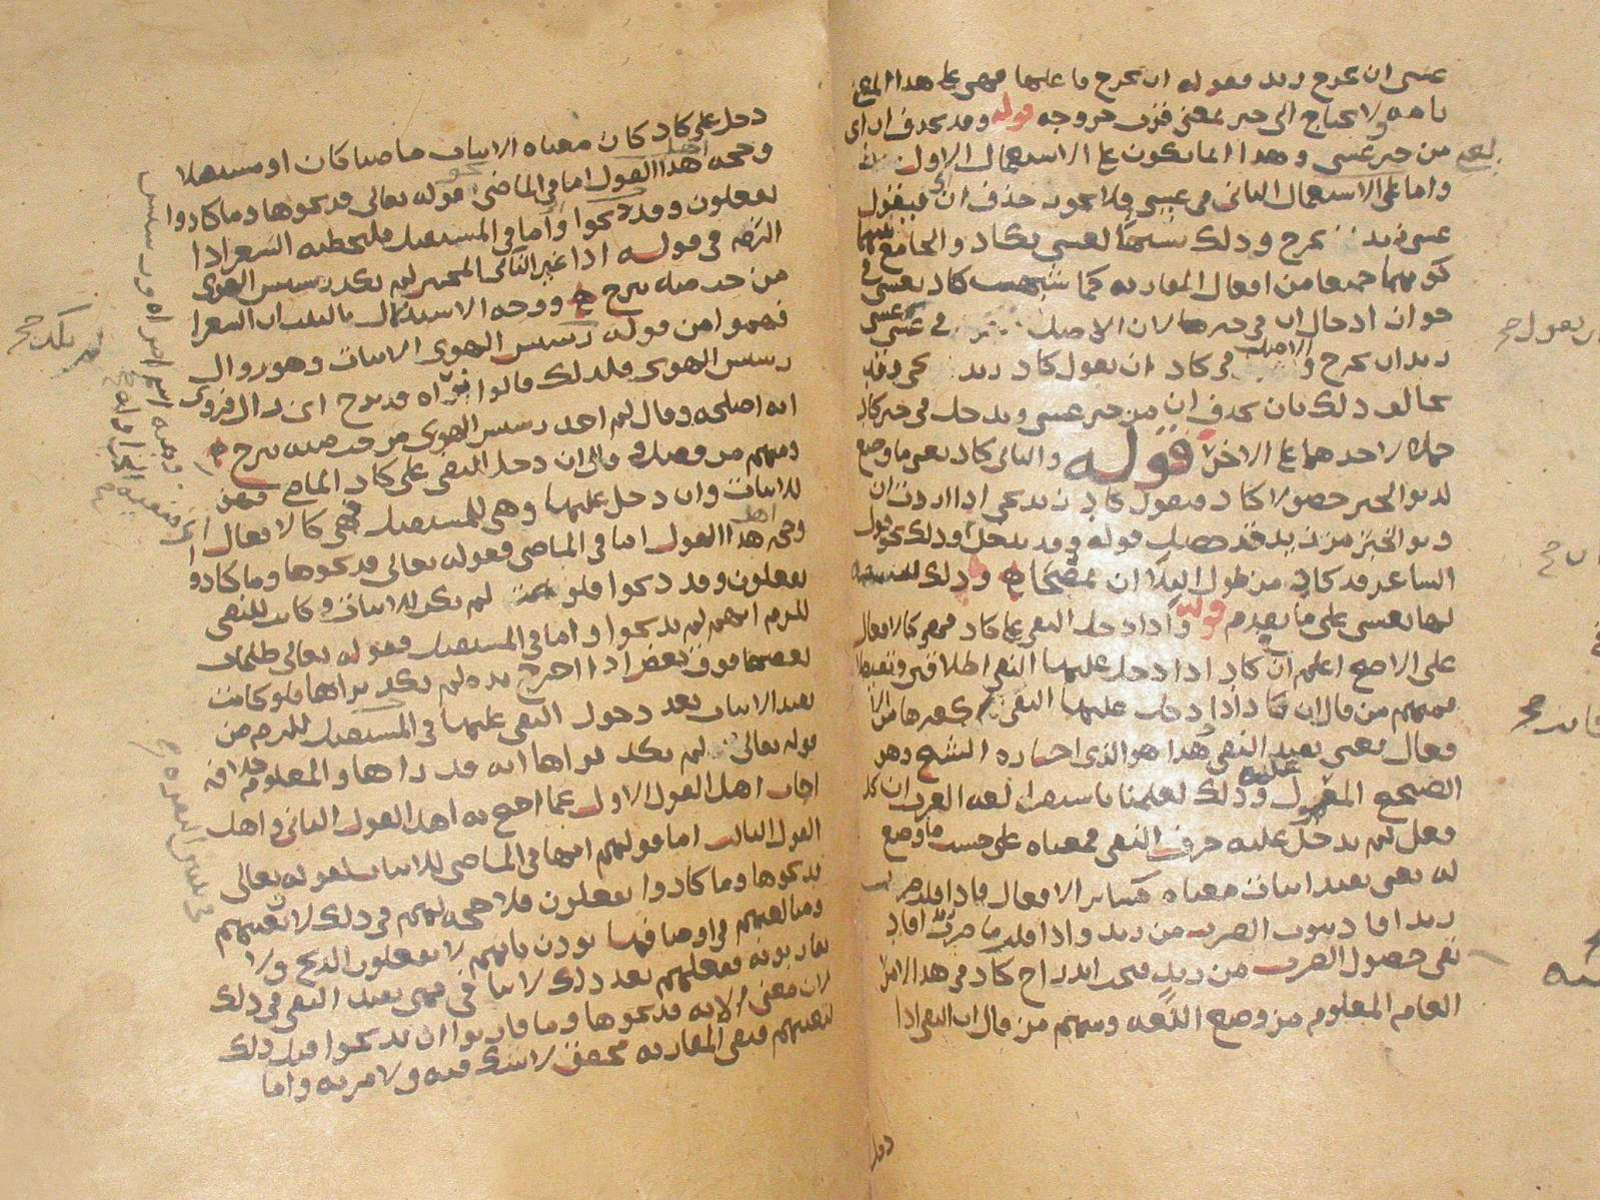 عسى ان يخرج زيد فقوله ان يخرج فاعلها فهي على هذا المعنى
تامه ولا يحتاج الى خبر بمعنى قرب خروجه قوله وقد يحذف ان اى
من خبر عسى وهذا انما يكون على الاستعمال الاول
واما على الاستعمال الثانى فى عسى فلا يجوز حذف ان فيقول
عسى زيد يخرج وذلك تشبيها لعسى بكاد والجامع بينهما
كونهما جميعا من افعال المقاربه كما شبهت كاد بعسى فى
جواز ادخال ان فى خبرها لان الاصل فى عسى عسى
زيد ان يخرج والاصل فى كاد ان يقول كاد زيد يجى وقد
يخالف ذلك بان يحذف ان من خبر عسى ويدخل فى خبر كاد
حملا لاحدهما على الاخر قوله والثانى كاد يعنى ما وضع
لدنو الخبر حصولا كاد فيقول كاد زيد يجى اذا اردت ان
دنو الخبر من زيد قد حصل قوله وقد يدخل ان وذلك نحو قول
الشاعر قد كاد من طول البلا ان يمصحا وذلك لتشبيه
لها بعسى على ما تقدم قوله واذا دخل النفى على كاد فهى كالافعال
على الاصح اعلم ان كاد اذا دخل عليها النفى اطلاقين وتقييدا
فمنهم من قال ان كاد اذا دخل عليها النفى كغيرها من الا
فعال يعنى يفيد النفى وهذا هو الذى اختاره الشيخ وهو
الصحيح المعول عليه وذلك لعلمنا باستقراء لغه العرب ان كل
فعل لم يدخل عليه حرف النفى فمعناه على حسب ما وضع
له يعنى يفيد اثبات معناه كسائر الافعال فاذا قلت ضربت
زيدا فاد ثبوت الضرب من زيد واذا قلت ما ضرب افاد
نفى حصول الضرب من زيد فيجب اندراج كاد فى هذا الامر
العام المعلوم من وضع اللغه ومنهم من قال ان النفى اذا
دخل
دخل على كاد كان معناه الاثبات ماضيا كان او مستقبلا
وحجه اهل هذا القول اما فى الماضى نحو قوله تعالى فذبحوها وما كادوا
يفعلون وقد ذبحوا واما فى المستقبل فلتخطئه الشعرا ذا
الرمه فى قوله اذا غير النأى المحبين لم يكد رسيس الهوى
من حب ميه يبرح ووجه الاستدلال بالبيت ان الشعرا
فهموا من قوله رسيس الهوى الاثبات وهو زوال
رسيس الهوى فلذلك قالوا نراه قد برح اى زال فروى
انه اصلحه وقال لم اجد رسيس الهوى من حب ميه يبرح
ومنهم من فصل وقال ان دخل النفى على كاد الماضى فهى
للاثبات وان دخل عليها وهى للمستقبل فهى كالافعال
وحجه اهل هذا القول اما فى الماضى فقوله تعالى فذبحوها وما كادوا
يفعلون وقد ذبحوا فلو لم يكن للاثبات وكانت للنفى
للزم انهم لم يذبحوا واما فى المستقبل فقوله تعالى ظلمات
بعضها فوق بعض اذا اخرج يده لم يكد يراها فلو كانت
تفيد الاثبات بعد دخول النفى عليها فى المستقبل للزم من
قوله تعالى لم يكد يراها انه قد راها والمعلوم خلافه
اجاب اهل القول الاول عما احتج به اهل القول الثانى واهل
القول الثالث اما قولهم انها فى الماضى للاثبات لقوله تعالى
فذبحوها وما كادوا يفعلون فلا حجه لهم فى ذلك لان تعنتهم
ومبالغتهم فى اوصافها يوذن بانهم لا يفعلون الذبح ولا
يقاربونه ففعلهم بعد ذلك لا ينافى فهى تفيد النفى فى ذلك
لان معنى الايه فذبحوها وما قاربوا ان يذبحوا قبل ذلك
لتعنتهم فنفى المقاربه محقق لا شك فيه ولا مريه واما